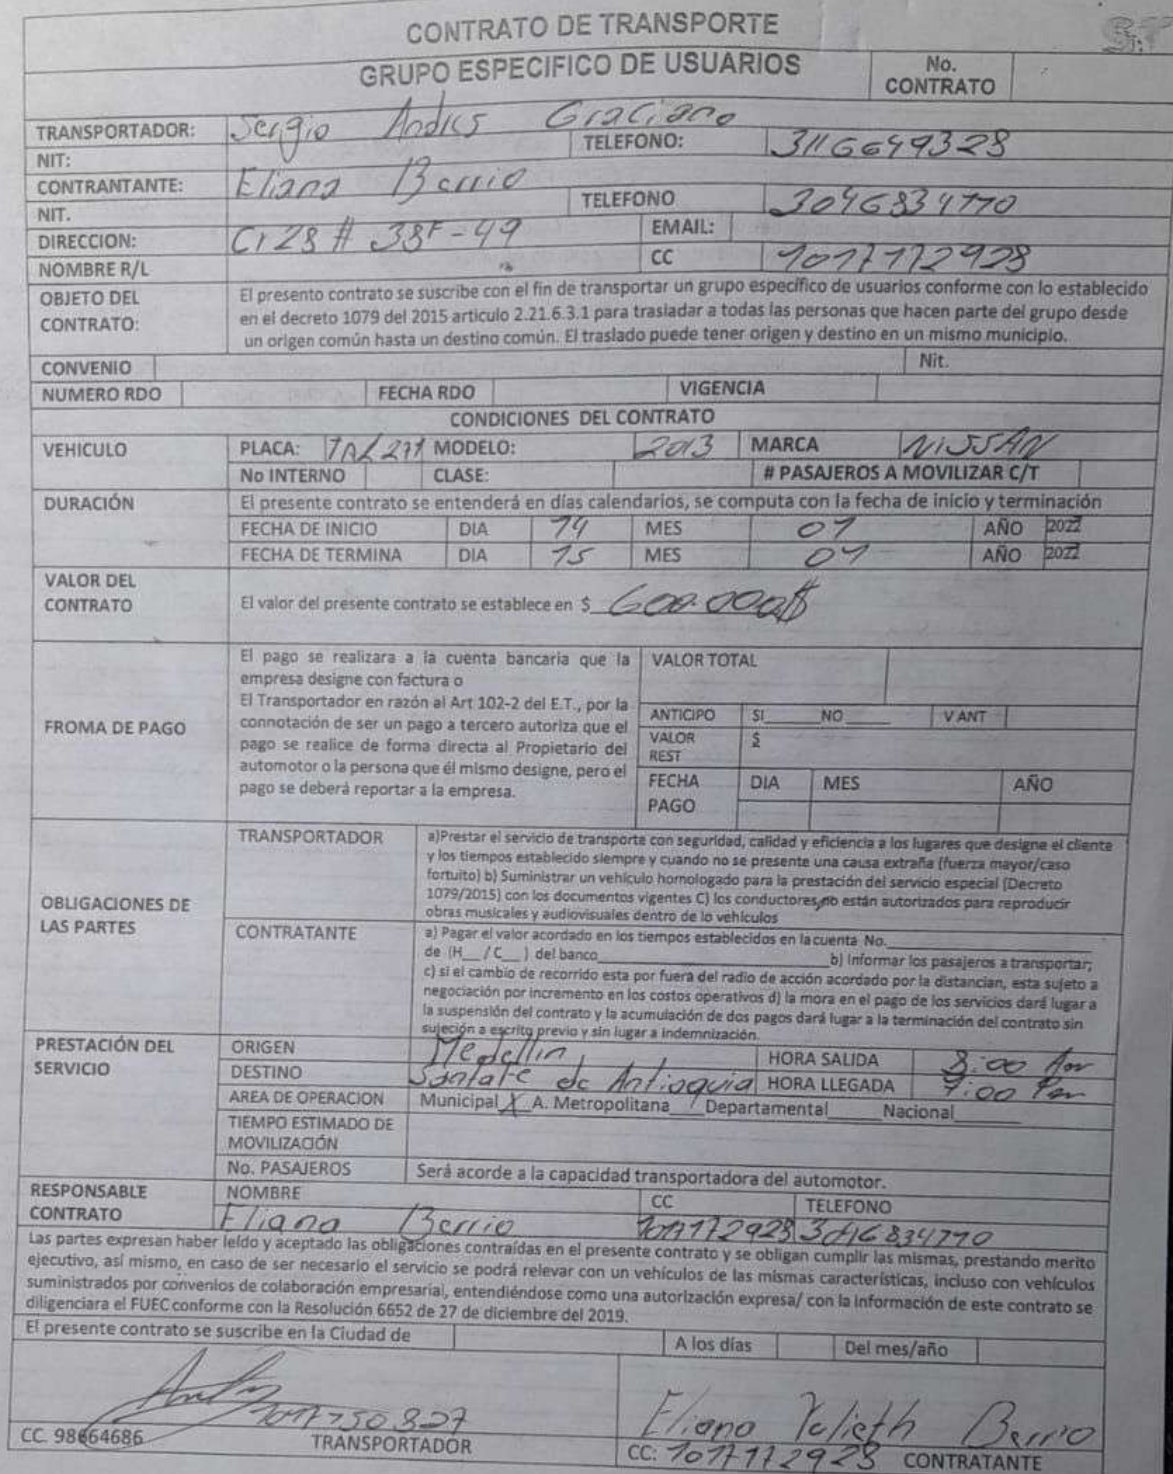 CONTRATO DE TRANSPORTE
GRUPO ESPECIFICO DE USUARIOS
No. CONTRATO
TRANSPORTADOR: Sergio Andres Graciano
NIT: TELEFONO: 3116649328
CONTRANTANTE: Eliana Berrio
NIT. TELEFONO 3046834770
DIRECCION: Cr 28 # 38F-49 EMAIL:
NOMBRE R/L CC 1017172928
OBJETO DEL CONTRATO:
El presento contrato se suscribe con el fin de transportar un grupo específico de usuarios conforme con lo establecido
en el decreto 1079 del 2015 articulo 2.21.6.3.1 para trasladar a todas las personas que hacen parte del grupo desde
un origen común hasta un destino común. El traslado puede tener origen y destino en un mismo municipio.
CONVENIO Nit.
NUMERO RDO FECHA RDO VIGENCIA
CONDICIONES DEL CONTRATO
VEHICULO PLACA: MODELO: 2013 MARCA NISSAN
No INTERNO CLASE: # PASAJEROS A MOVILIZAR C/T
DURACIÓN El presente contrato se entenderá en días calendarios, se computa con la fecha de inicio y terminación
FECHA DE INICIO DIA 14 MES 01 AÑO 2022
FECHA DE TERMINA DIA 15 MES 01 AÑO 2022
VALOR DEL CONTRATO El valor del presente contrato se establece en $ 600.000$
FROMA DE PAGO
El pago se realizara a la cuenta bancaria que la
empresa designe con factura o
El Transportador en razón al Art 102-2 del E.T., por la
connotación de ser un pago a tercero autoriza que el
pago se realice de forma directa al Propietario del
automotor o la persona que él mismo designe, pero el
pago se deberá reportar a la empresa.
VALOR TOTAL
ANTICIPO SI____NO____ V ANT
VALOR REST $
FECHA PAGO DIA MES AÑO
OBLIGACIONES DE LAS PARTES
TRANSPORTADOR
a)Prestar el servicio de transporte con seguridad, calidad y eficiencia a los lugares que designe el cliente
y los tiempos establecido siempre y cuando no se presente una causa extraña (fuerza mayor/caso
fortuito) b) Suministrar un vehículo homologado para la prestación del servicio especial (Decreto
1079/2015) con los documentos vigentes C) los conductores no están autorizados para reproducir
obras musicales y audiovisuales dentro de lo vehículos
CONTRATANTE
a) Pagar el valor acordado en los tiempos establecidos en la cuenta No.____
de (H__/C__) del banco____b) Informar los pasajeros a transportar;
c) si el cambio de recorrido esta por fuera del radio de acción acordado por la distancian, esta sujeto a
negociación por incremento en los costos operativos d) la mora en el pago de los servicios dará lugar a
la suspensión del contrato y la acumulación de dos pagos dará lugar a la terminación del contrato sin
sujeción a escrito previo y sin lugar a indemnización.
PRESTACIÓN DEL SERVICIO
ORIGEN Medellin HORA SALIDA 8:00 Am
DESTINO Santafe de Antioquia HORA LLEGADA 7:00 Pm
AREA DE OPERACION Municipal X A. Metropolitana___Departamental____Nacional____
TIEMPO ESTIMADO DE MOVILIZACIÓN
No. PASAJEROS Será acorde a la capacidad transportadora del automotor.
RESPONSABLE CONTRATO
NOMBRE CC TELEFONO
Eliana Berrio 3046834770
Las partes expresan haber leído y aceptado las obligaciones contraídas en el presente contrato y se obligan cumplir las mismas, prestando merito
ejecutivo, así mismo, en caso de ser necesario el servicio se podrá relevar con un vehículos de las mismas características, incluso con vehículos
suministrados por convenios de colaboración empresarial, entendiéndose como una autorización expresa/ con la información de este contrato se
diligenciara el FUEC conforme con la Resolución 6652 de 27 de diciembre del 2019.
El presente contrato se suscribe en la Ciudad de A los días Del mes/año
1017750827
CC. 98664686 TRANSPORTADOR
Eliana Yulieth Berrio
CC: 1017172928 CONTRATANTE